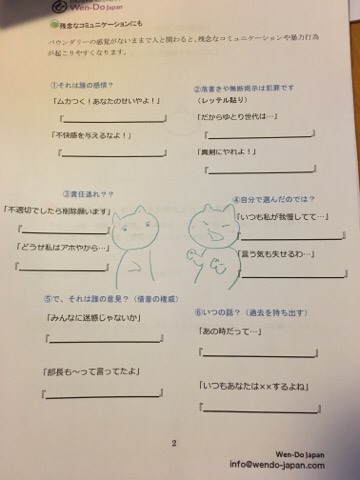 Wen-Do Japan
残念なコミュニケーションにも
バウンダリーの感覚がないままで人と関わると、残念なコミュニケーションや暴力行為
が起こりやすくなります。
①それは誰の感情？
「ムカつく！あなたのせいやよ！」
『 』
「不快感を与えるなよ！」
『 』
②落書きや無断掲示は犯罪です
（レッテル貼り）
「だからゆとり世代は…」
『 』
「真剣にやれよ！」
『 』
③責任逃れ？？
「不適切でしたら削除願います」
『 』
「どうせ私はアホやから…」
『 』
④自分で選んだのでは？
「いつも私が我慢してて…」
『 』
「言う気も失せるわ…」
『 』
⑤で、それは誰の意見？（借着の権威）
「みんなに迷惑じゃないか」
『 』
「部長も～って言ってたよ」
『 』
⑥いつの話？（過去を持ち出す）
「あの時だって…」
『 』
「いつもあなたは××するよね」
『 』
2
Wen-Do Japan
info@wendo-japan.com